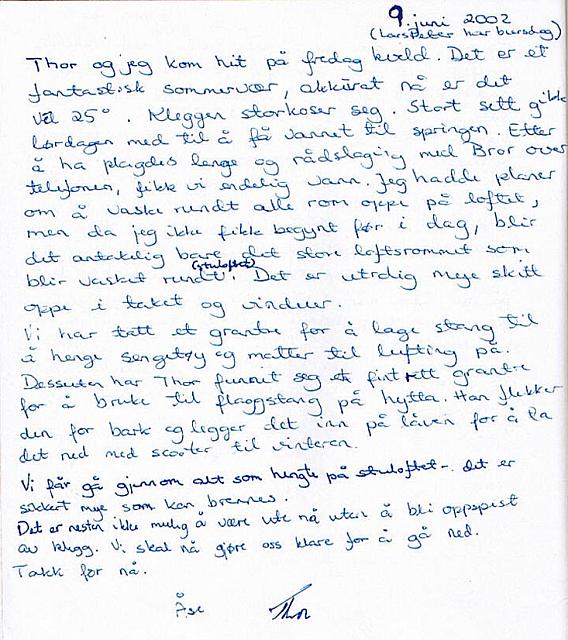 9. juni 2002
(Lars Peter har bursdag)
Thor og jeg kom hit på fredag kveld. Det er et
fantastisk sommervær, akkurat nå er det
vel 25°. Kleggen storkoser seg. Stort sett gikk
lørdagen med til å få vannet til springen. Etter
å ha plagdes lenge og rådslagning med Bror over
telefonen, fikk vi endelig vann. Jeg hadde planer
om å vaske rundt alle rom oppe på loftet,
men da jeg ikke fikk begynt før i dag, blir
det antakelig bare det store loftsrommet som
(stuloftet)
blir vasket rundt. Det er utrolig mye skitt
oppe i taket og vinduer.
Vi har tatt et grantre for å lage stang til
å henge sengetøy og matter til lufting på.
Dessuten har Thor funnet seg et fint rett grantre
for å bruke til flaggstang på hytta. Han flekker
den for bark og legger det inn på låven for å ta
det ned med scooter til vinteren.
Vi får gå gjennom alt som hengte på stuloftet - det er
sikkert mye som kan brennes.
Det er nesten ikke mulig å være ute nå uten å bli oppspist
av klegg. Vi skal nå gjøre oss klare for å gå ned.
Takk for nå.
Åse Thor